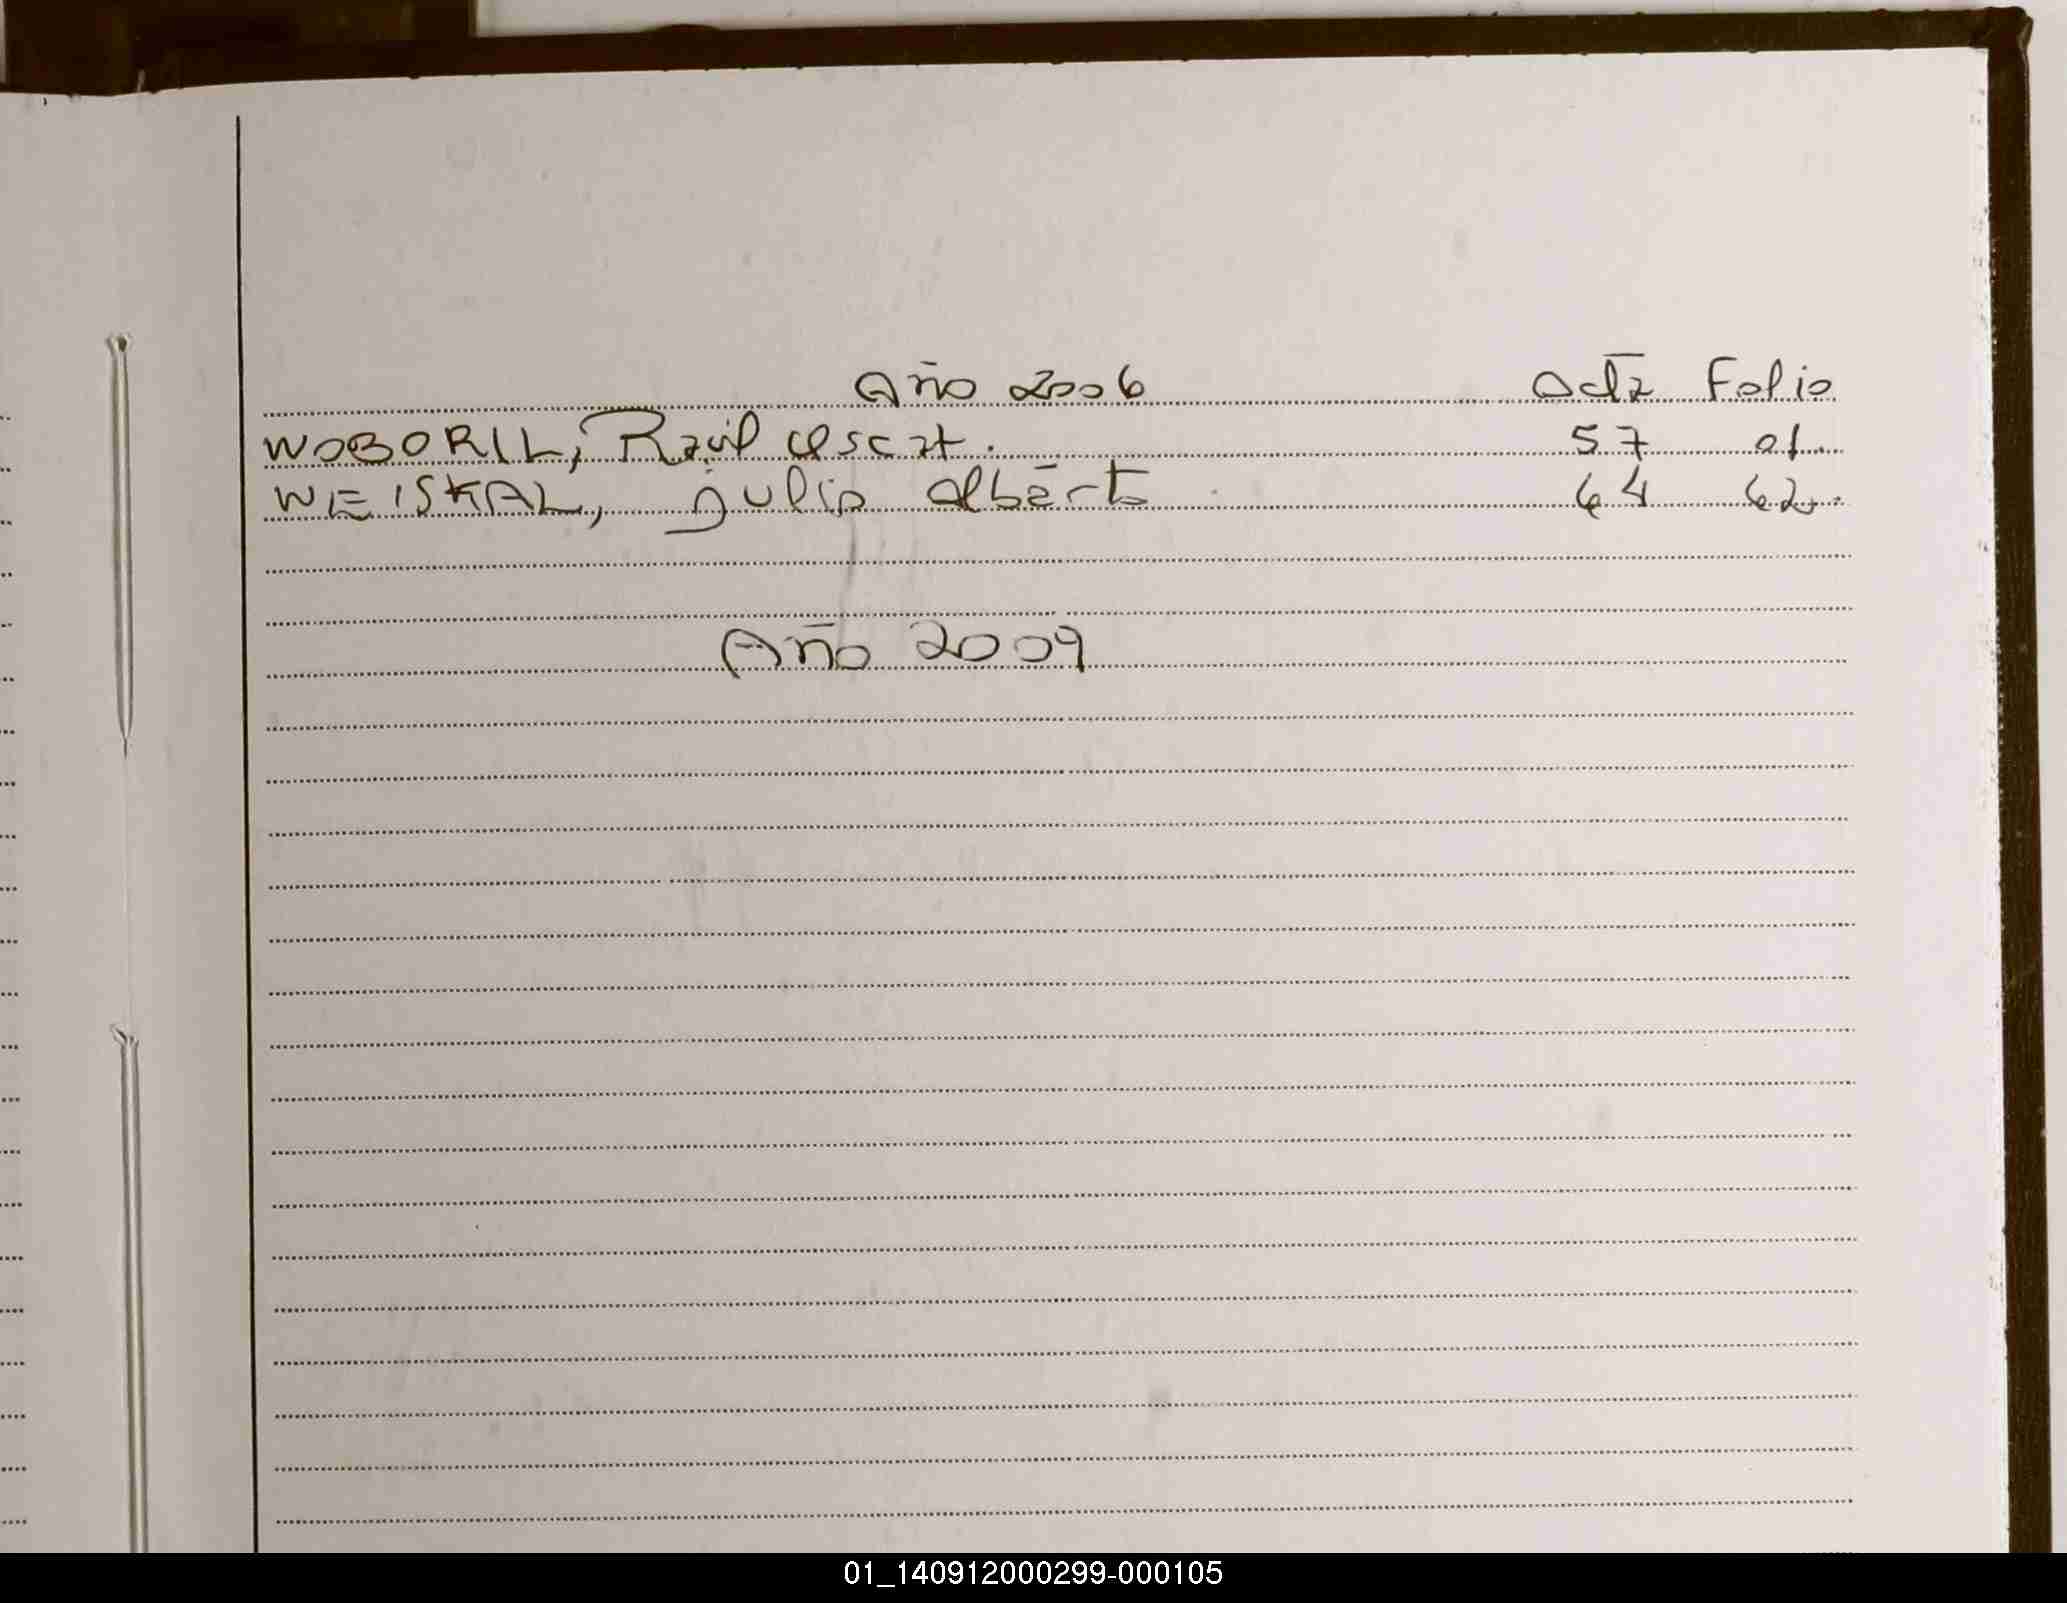 Año 2006 Acta Folio
WOBORIL, Raúl Oscar. 57 01.
WEISKAL, Julio Alberto 64 62.
Año 2009
01_140912000299-000105